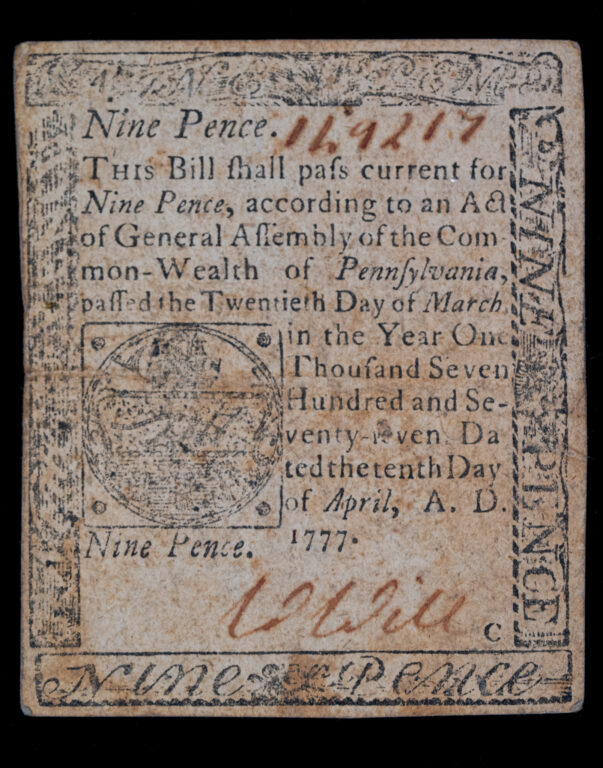 Nine Pence. 149217
THIS Bill ſhall paſs current for
Nine Pence, according to an Act
of General Aſſembly of the Com-
mon-Wealth of Pennſylvania,
paſſed the Twentieth Day of March,
in the Year One
Thouſand Seven
Hundred and Se-
venty-ſeven. Da
ted the tenth Day
of April, A. D.
Nine Pence. 1777.
W Will
C
NINE PENCE
Nine Pence